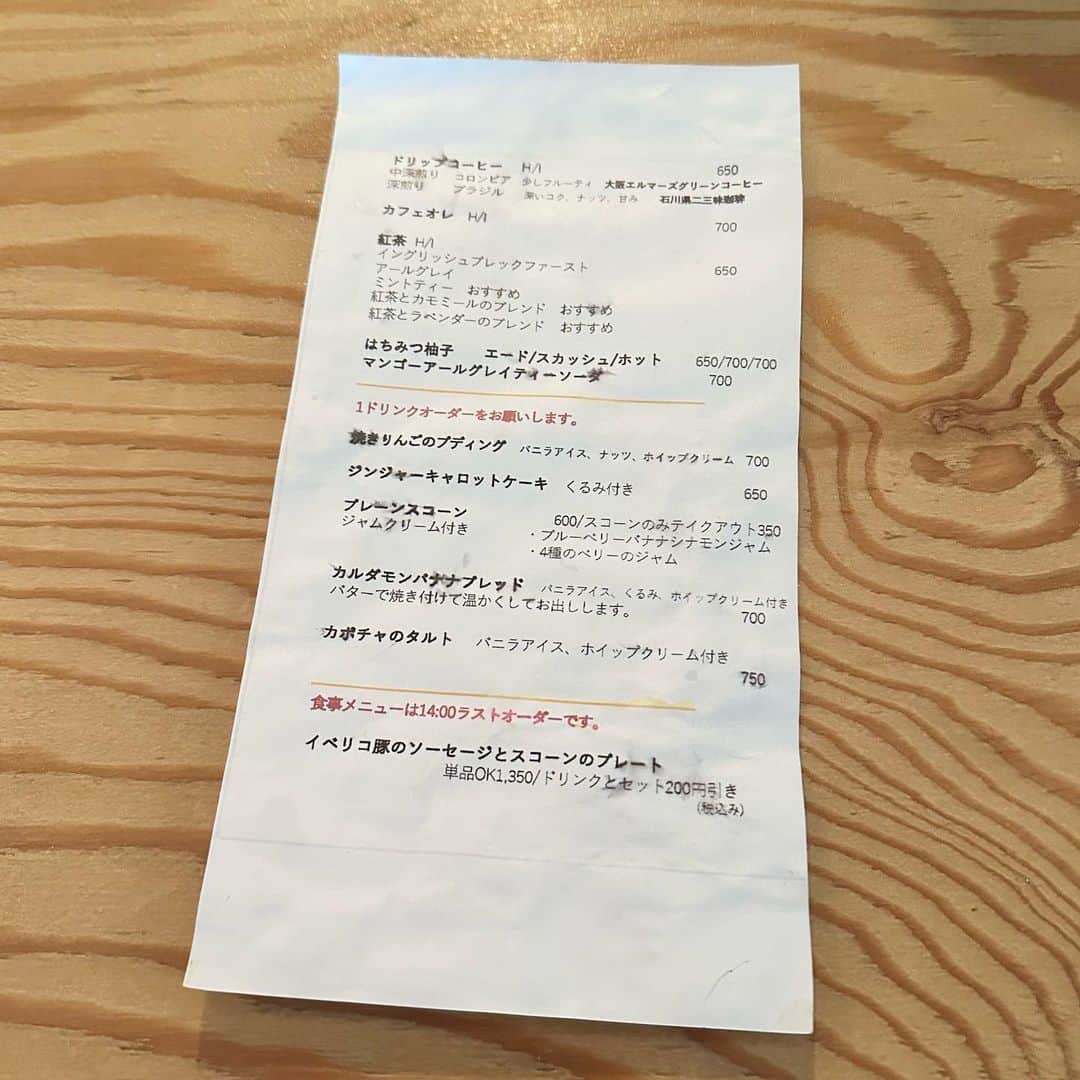 ドリップコーヒー H/I 650
中深煎り コロンビア 少しフルーティ 大阪エルマーズグリーンコーヒー
深煎り ブラジル 深いコク、ナッツ、甘み 石川県二三味珈琲
カフェオレ H/I 700
紅茶 H/I
イングリッシュブレックファースト 650
アールグレイ
ミントティー おすすめ
紅茶とカモミールのブレンド おすすめ
紅茶とラベンダーのブレンド おすすめ
はちみつ柚子 エード/スカッシュ/ホット 650/700/700
マンゴーアールグレイティーソーダ 700
1ドリンクオーダーをお願いします。
焼きりんごのプディング バニラアイス、ナッツ、ホイップクリーム 700
ジンジャーキャロットケーキ くるみ付き 650
プレーンスコーン 600/スコーンのみテイクアウト350
ジャムクリーム付き ・ブルーベリーバナナシナモンジャム
・4種のベリーのジャム
カルダモンバナナブレッド バニラアイス、くるみ、ホイップクリーム付き
バターで焼き付けて温かくしてお出しします。 700
カボチャのタルト バニラアイス、ホイップクリーム付き
750
食事メニューは14:00ラストオーダーです。
イベリコ豚のソーセージとスコーンのプレート
単品OK1,350/ドリンクとセット200円引き
(税込み)